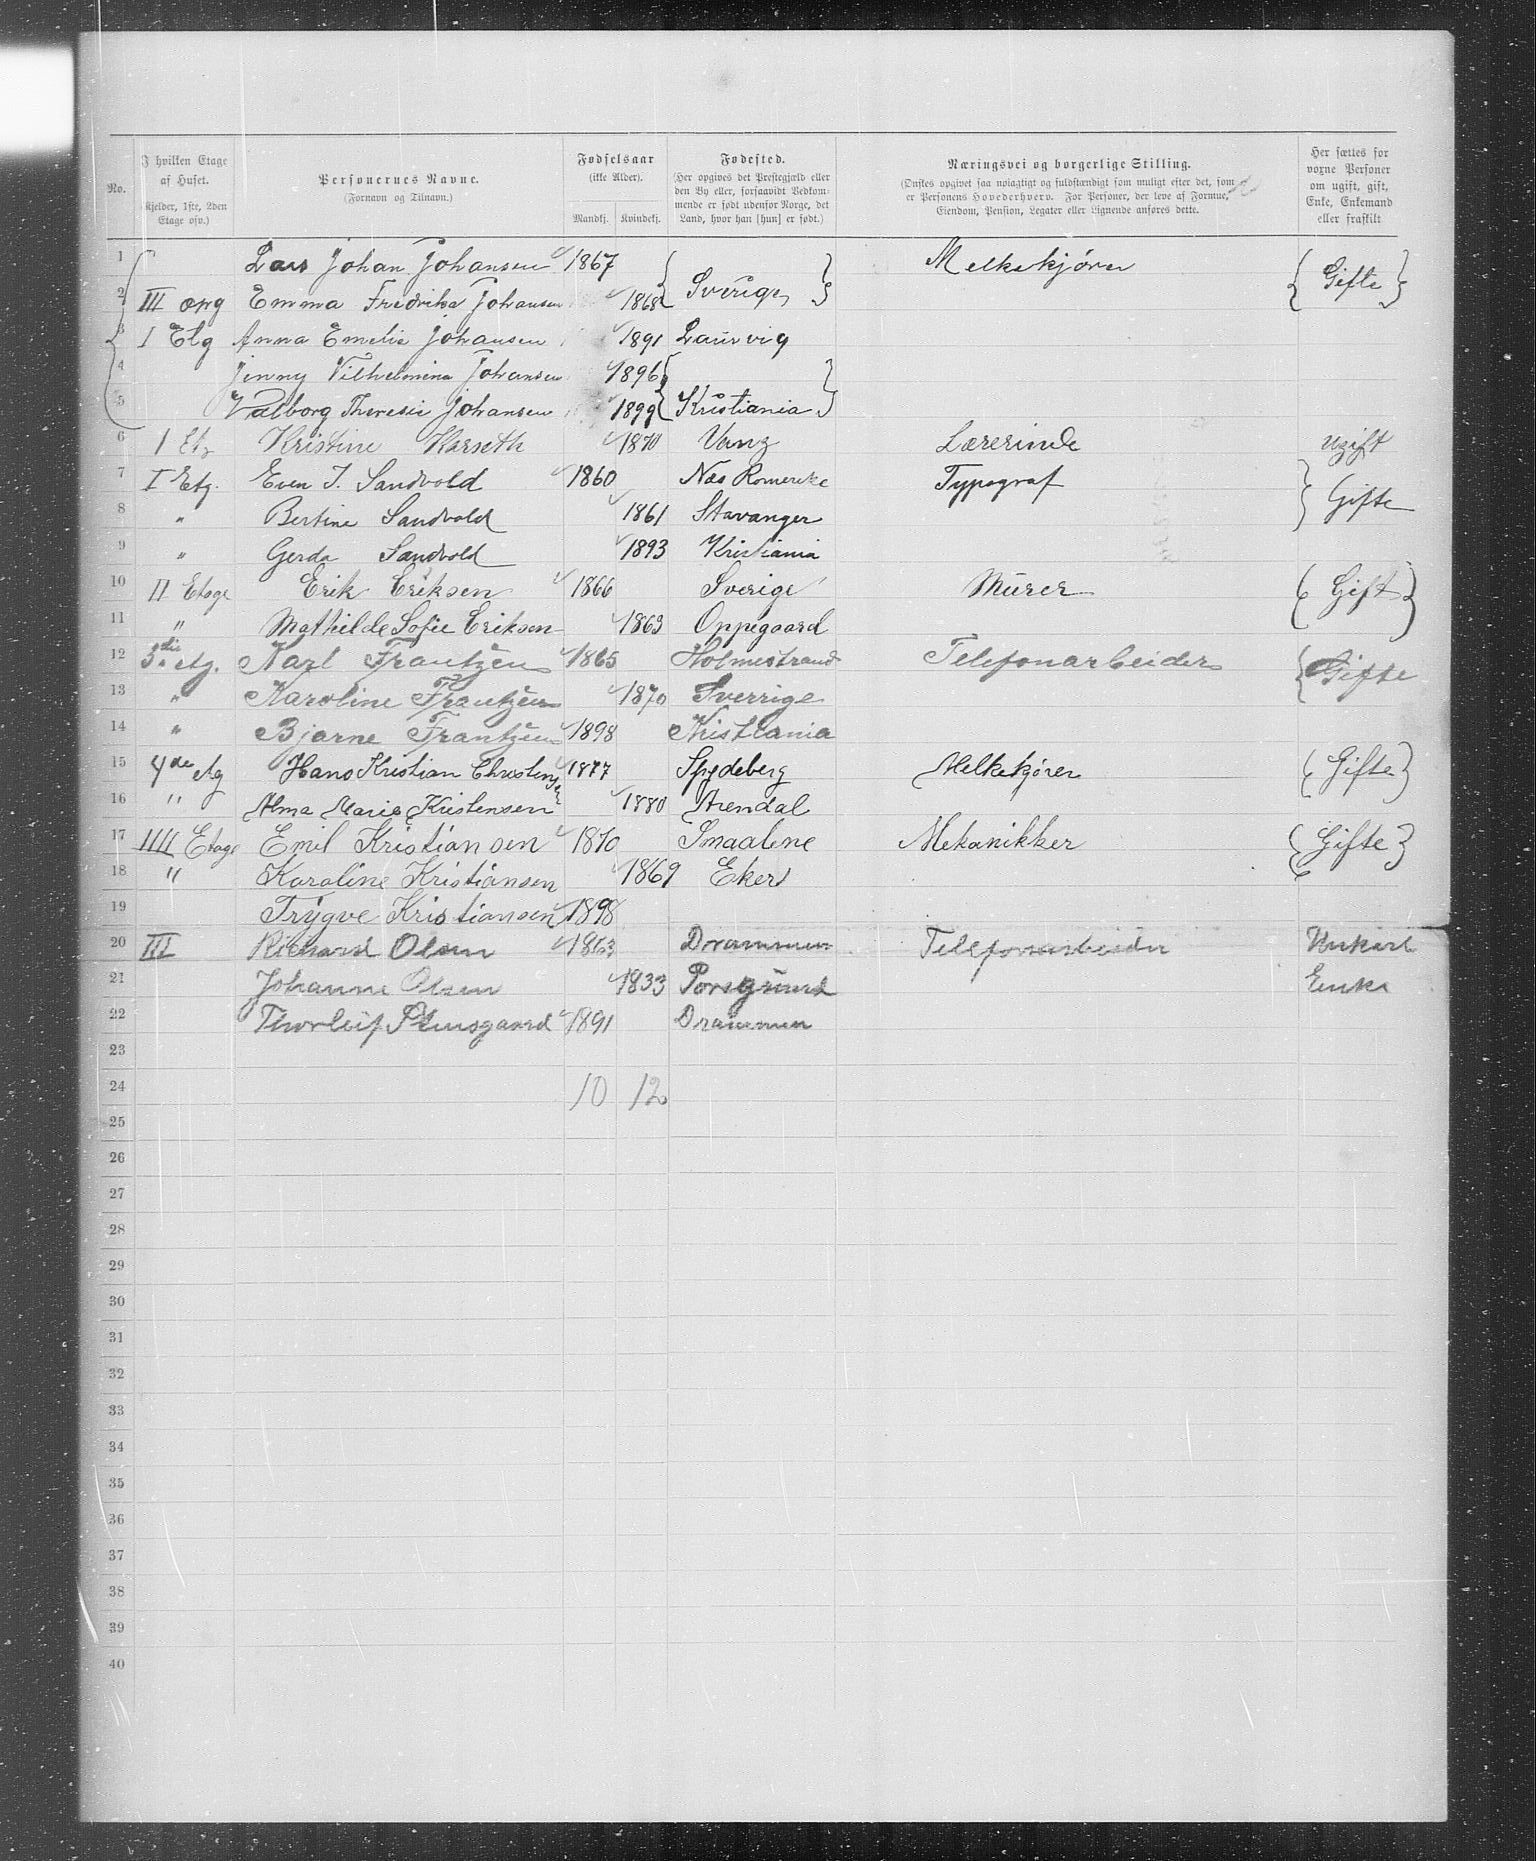 No.
I hvilken Etage af Huset. (Kjelder, 1ste, 2den Etage osv.)
Personernes Navne. (Fornavn og Tilnavn.)
Fødselsaar (ikke Alder). Mandkj. Kvindekj.
Fødested. (Her opgives det Prestegjæld eller den By eller, forsaavidt Vedkommende er født udenfor Norge, det Land, hvor han [hun] er født.)
Næringsvei og borgerlige Stilling. (Ønskes opgivet saa nøiagtigt og fuldstændigt som muligt efter det, som er Personens Hovederhverv. For Personer, der leve af Formue, Eiendom, Pension, Legater eller Lignende anføres dette.
Her sættes for voxne Personer om ugift, gift, Enke, Enkemand eller fraskilt
1 Lars Johan Johansen 1867 Melkekjører
2 III opg Emma Fredrika Johansen 1868 Sverige Gifte
3 I Etg Anna Emelie Johansen 1891 Laurvig
4 Jenny Vilhelmina Johansen 1896
5 Valborg Theresie Johansen 1899 Kristiania
6 I Etg Kristine Karseth 1870 Vang Lærerinde ugift
7 I Etg. Even I. Sandvold 1860 Næs Romerike Typograf
8 " Bertine Sandvold 1861 Stavanger Gifte
9 " Gerda Sandvold 1893 Kristiania
10 II Etage Erik Eriksen 1866 Sverige Murer Gift
11 " Mathilde Sofie Eriksen 1863 Oppegaard
12 3die etg. Karl Frantzen 1865 Holmestrand Telefonarbeider Gifte
13 " Karoline Frantzen 1870 Sverrige
14 " Bjarne Frantzen 1898 Kristiania
15 4de etg Hans Kristian Christens 1877 Spydeberg Melkekjører Gifte
16 " Alma Marie Kristensen 1880 Arendal
17 IIII Etage Emil Kristiansen 1870 Smaalene Mekanikker Gifte
18 " Karoline Kristiansen 1869 Eker
19 Trygve Kristiansen 1898
20 III Richard Olsen 1863 Drammen Telefonarbeider
21 Johanne Olsen 1833 Porsgrund Enke
22 Thorleif 1891 Drammen
23
24 10 12
25
26
27
28
29
30
31
32
33
34
35
36
37
38
39
40